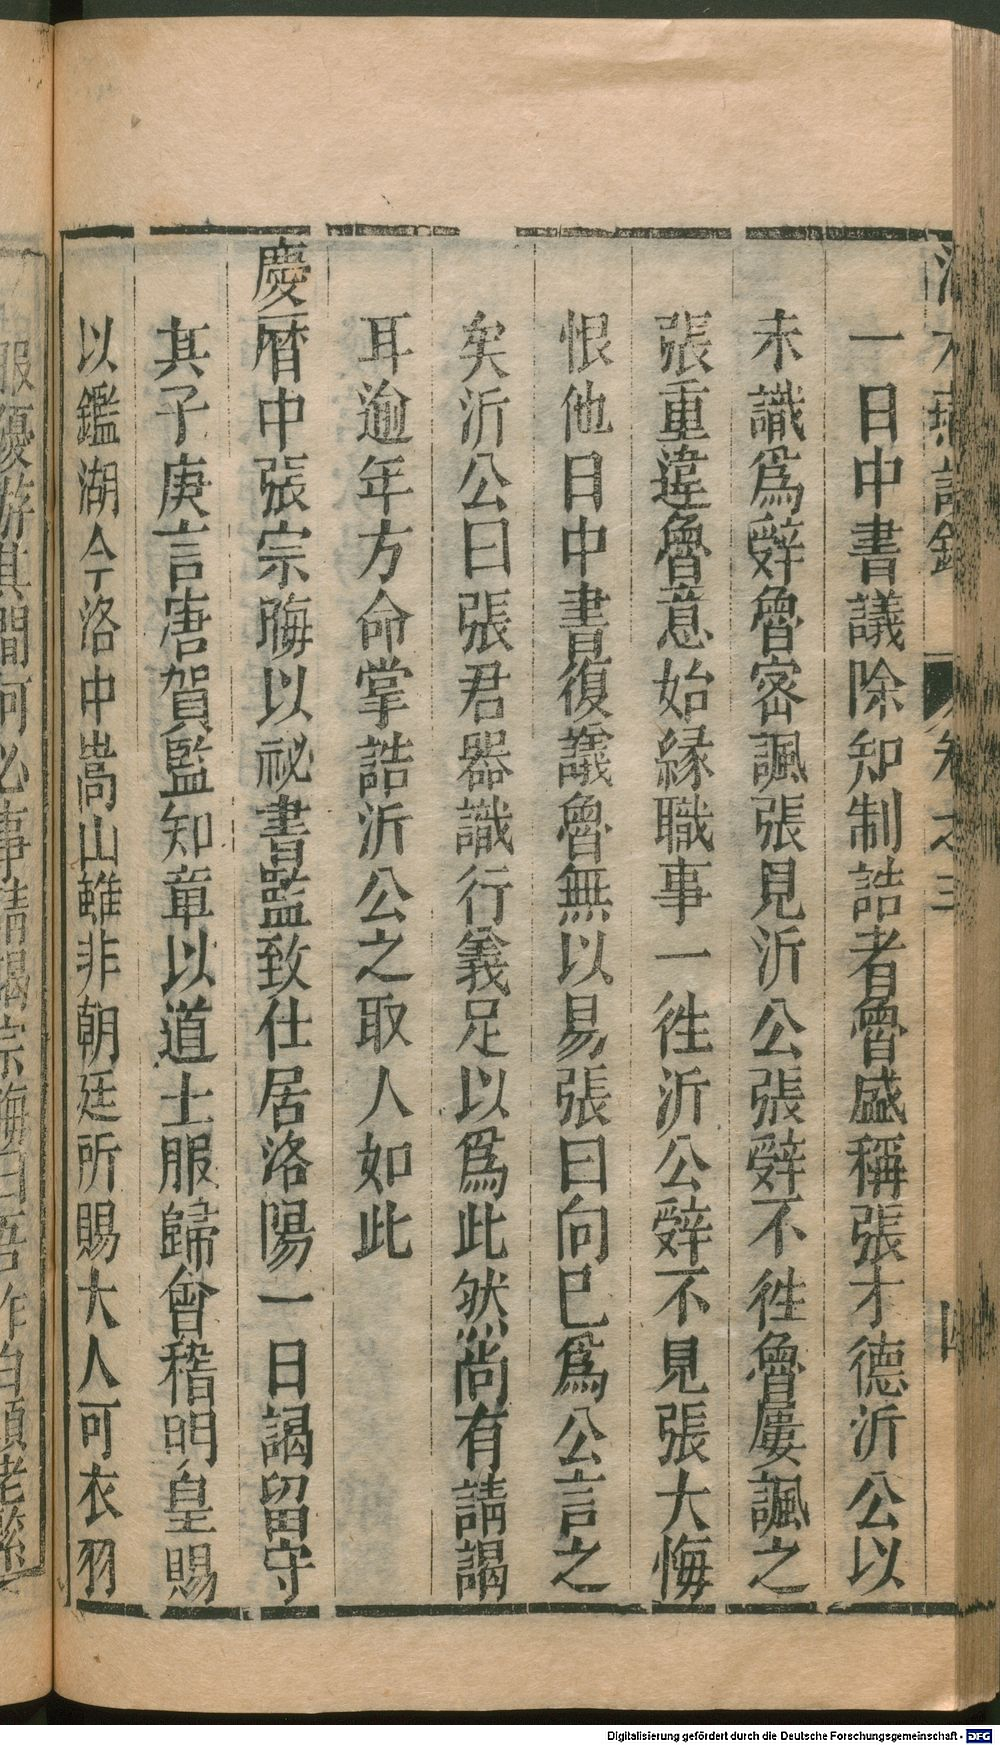 卷之三
一日中書議除知制誥者魯盛稱張才德沂公以
未識爲辤魯密諷張見沂公張辤不徃魯屢諷之
張重違魯意始緣職事一徃沂公辤不見張大悔
恨他日中書復議魯無以易張曰向巳爲公言之
矣沂公曰張君器識行義足以爲此然尚有請謁
耳逾年方命掌誥沂公之取人如此
慶曆中張宗晦以祕書監致仕居洛陽一日謁留守
其子庚言唐賀監知章以道士服歸會稽明皇賜
以鑑湖今洛中嵩山雖非朝廷所賜大人可衣羽
服優游其間何必事請謁宗晦曰吾作白頭老
Digitalisierung gefördert durch die Deutsche Forschungsgemeinschaft - DFG